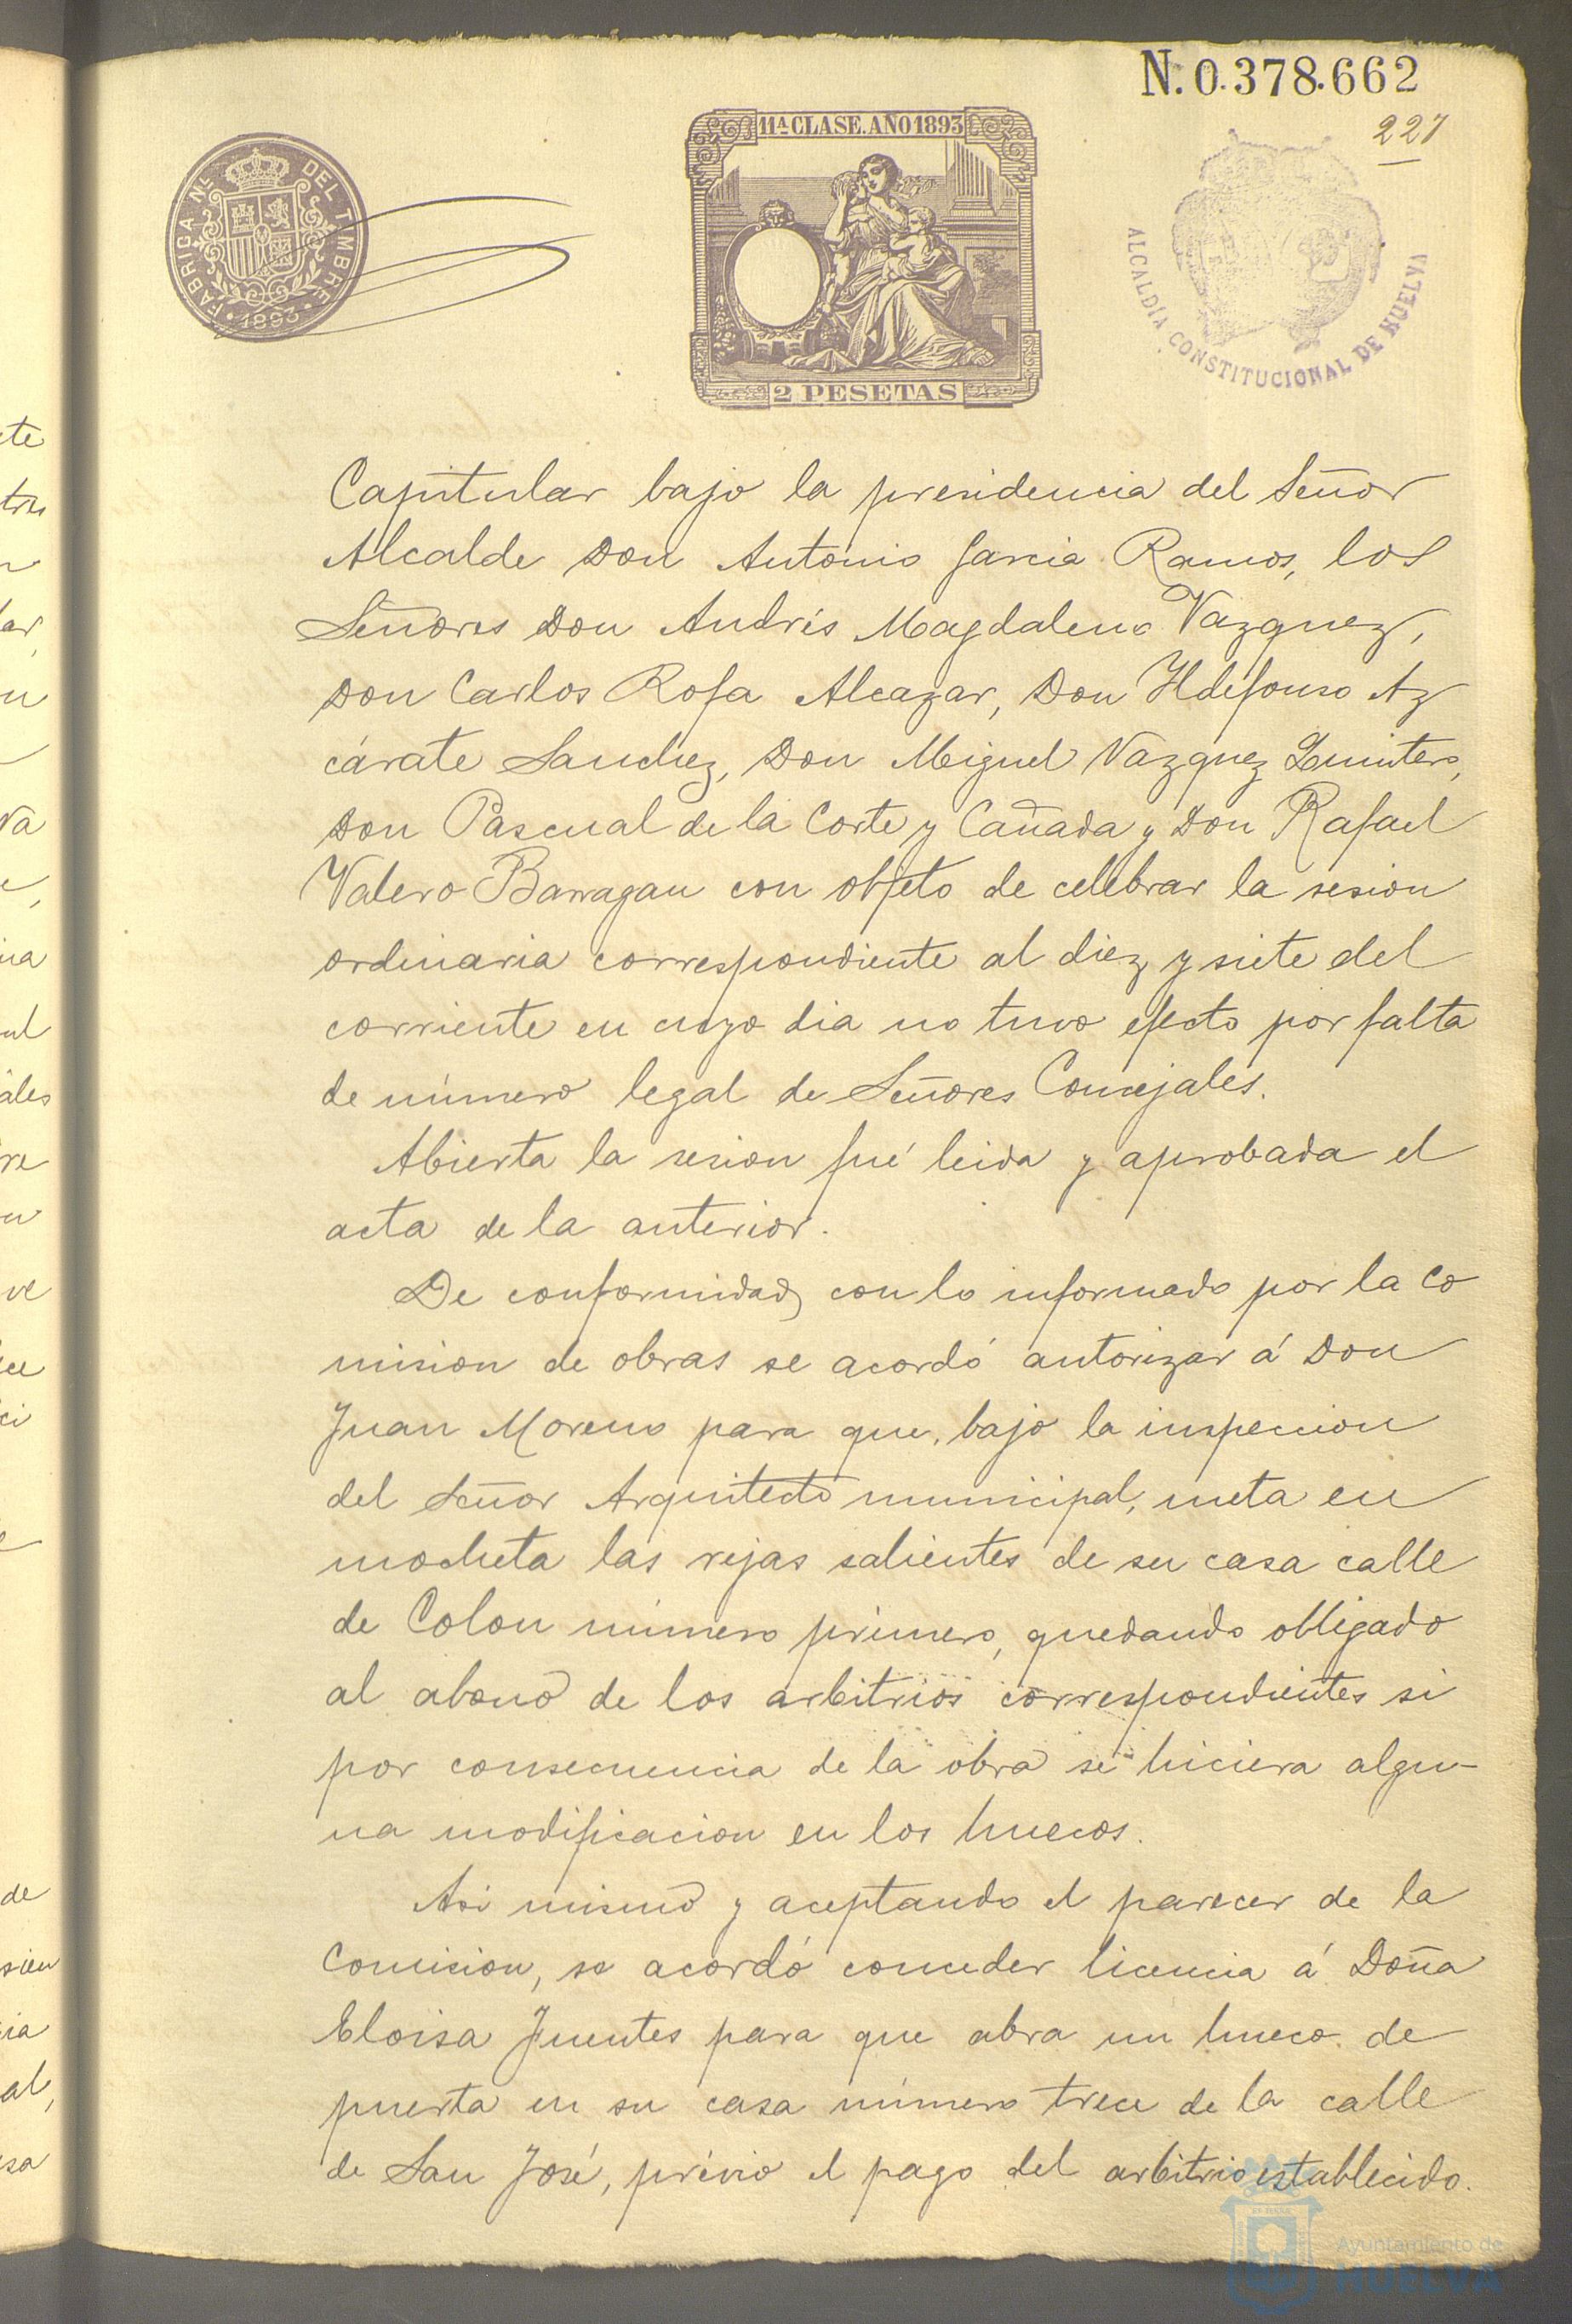 N. 0.378.662
227
11ª CLASE. AÑO 1893
FABRICA N.L DEL TIMBRE
1893
2 PESETAS
ALCALDÍA CONSTITUCIONAL DE HUELVA
Capitular bajo la presidencia del Señor
Alcalde Don Antonio Garcia Ramos, los
Señores Don Andrés Magdaleno Vazquez,
Don Carlos Rofa Alcazar, Don Ildefonso Az
cárate Sanchez, Don Miguel Vazquez Quintero,
Don Pascual de la Corte y Cañada y Don Rafael
Valero Barragan con objeto de celebrar la sesion
ordinaria correspondiente al diez y siete del
corriente en cuyo dia no tuvo efecto por falta
de número legal de Señores Concejales.
Abierta la sesion fué leida y aprobada el
acta de la anterior.
De conformidad con lo informado por la Co
mision de obras se acordó autorizar á Don
Juan Moreno para que, bajo la inspeccion
del Señor Arquitecto municipal, meta en
mocheta las rejas salientes de su casa calle
de Colon número primero, quedando obligado
al abono de los arbitrios correspondientes si
por consecuencia de la obra se hiciera algu-
na modificacion en los huecos.
Asi mismo y aceptando el parecer de la
Comision, se acordó conceder licencia á Doña
Eloisa Fuentes para que abra un hueco de
puerta en su casa número trece de la calle
de San José, prévio el pago del arbitrio establecido.
Ayuntamiento de
HUELVA